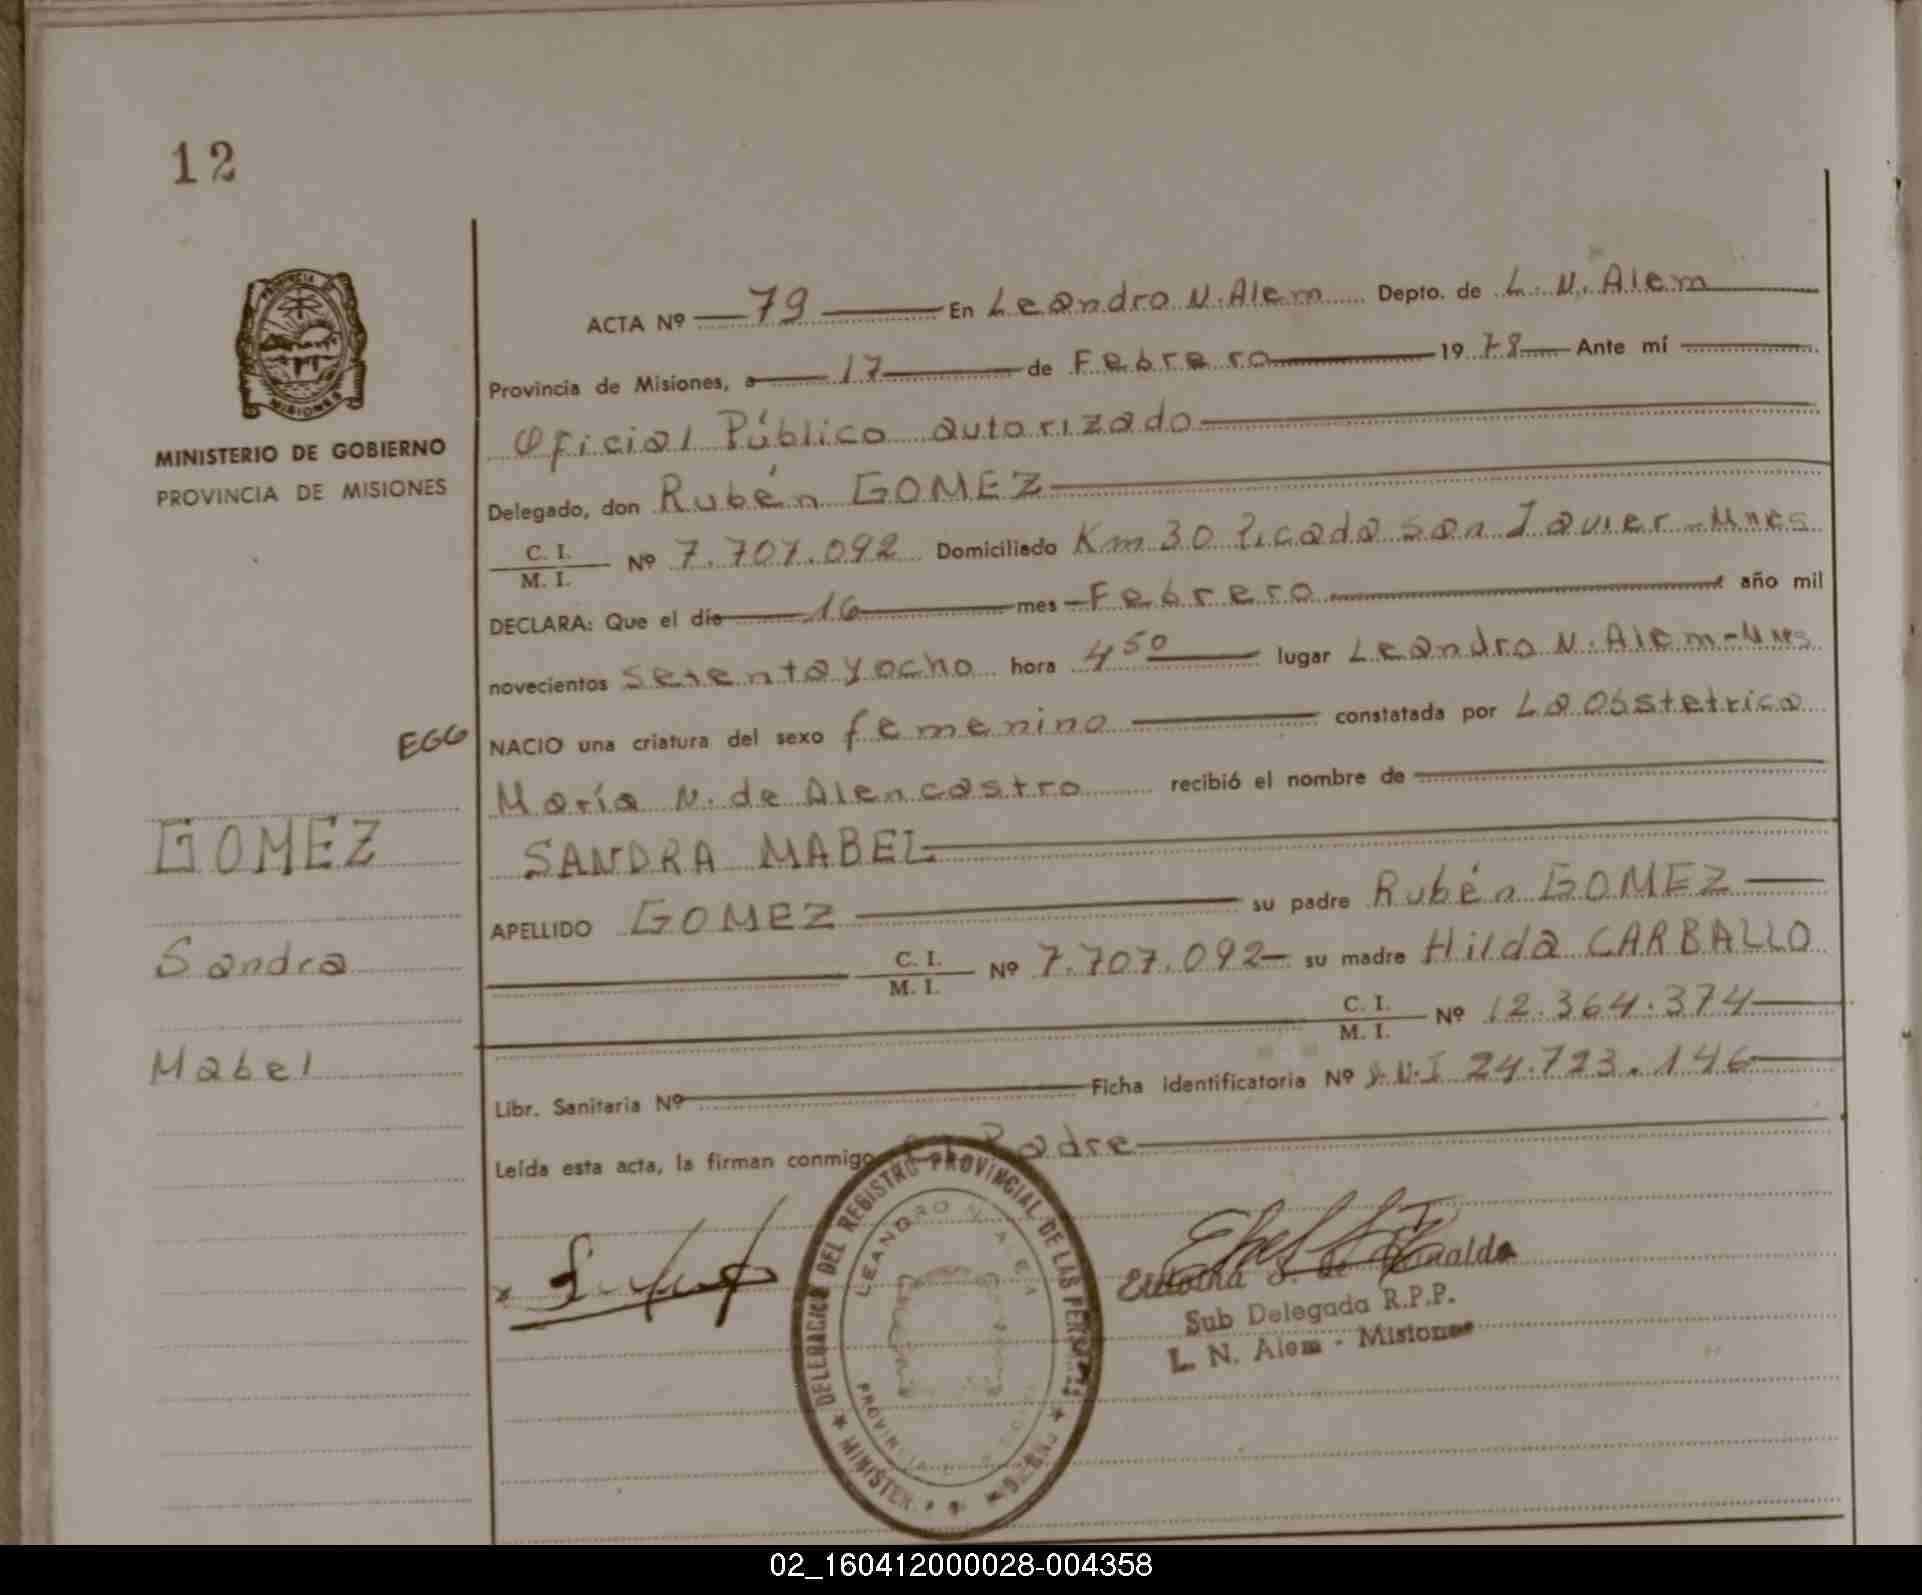 12
PROVINCIA DE
MISIONES
MINISTERIO DE GOBIERNO
PROVINCIA DE MISIONES
ACTA Nº 79 En Leandro N. Alem Depto. de L. N. Alem
Provincia de Misiones, a 17 de Febrero 1978 Ante mí
Oficial Público autorizado
Delegado, don Rubén GOMEZ
C. I.
M. I. Nº 7.707.092 Domiciliado Km 30 Picada San Javier - Mnes
DECLARA: Que el día 16 mes Febrero año mil
novecientos setenta y ocho hora 4 50 lugar Leandro N. Alem - Mnes
EGG
NACIO una criatura del sexo femenino constatada por La Obstetrica
María N. de Alencastro recibió el nombre de
SANDRA MABEL
APELLIDO GOMEZ su padre Rubén GOMEZ
C. I.
M. I. Nº 7.707.092 su madre Hilda CARBALLO
C. I.
M. I. Nº 12.364.374
Libr. Sanitaria Nº Ficha identificatoria Nº D.N.I 24.723.146
Leída esta acta, la firman conmigo El Padre
GOMEZ
Sandra
Mabel
DELEGACION DEL REGISTRO PROVINCIAL DE LAS PERSONAS
LEANDRO N. ALEM
Sub Delegada R.P.P.
L. N. Alem - Misiones
02_160412000028-004358